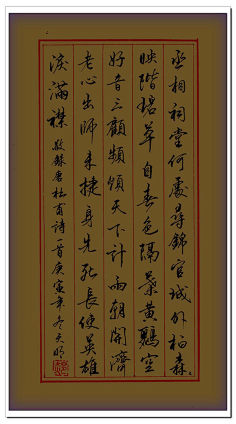 丞相祠堂何處尋錦官城外柏森々
映階碧草自春色隔葉黃鸝空
好音三顧頻煩天下計兩朝開濟
老心出師未捷身先死長使英雄
淚滿襟 敬錄唐杜甫詩一首庚寅年冬天明